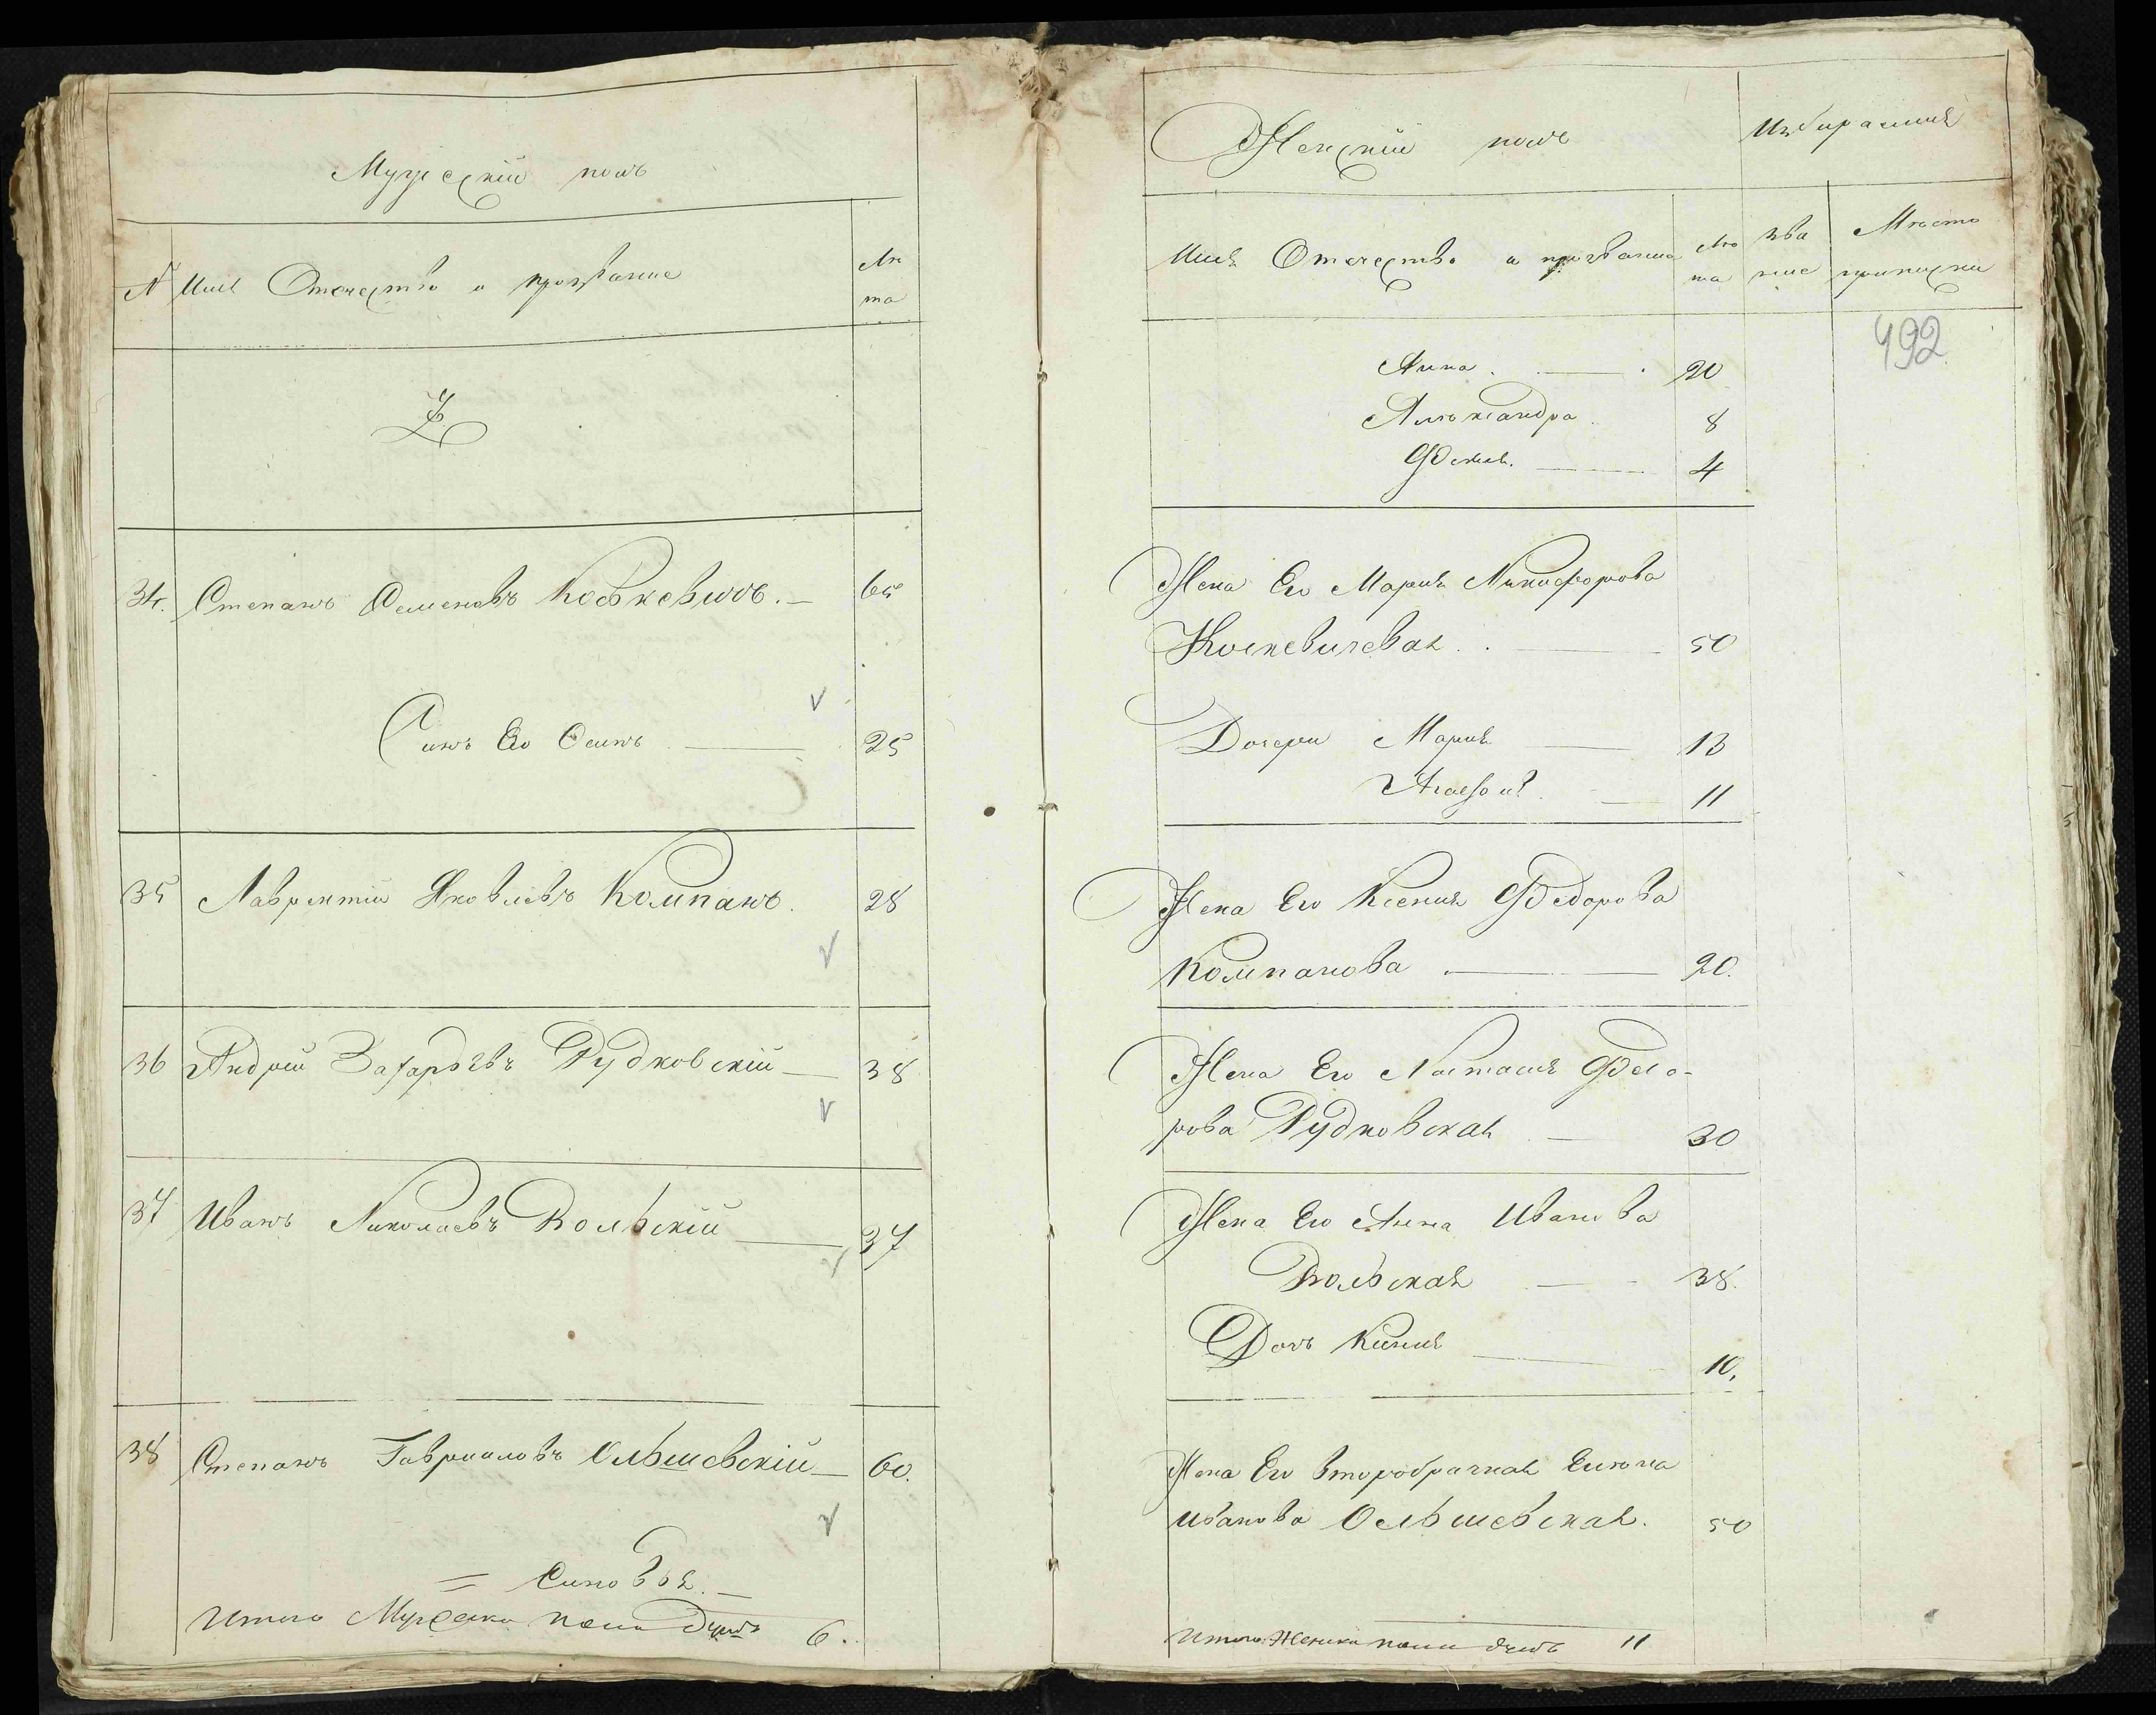 Мужескій полъ
№ Имя Отечество и прозваніе Лѣ
та
34. Степанъ Семеновъ Коськевичъ. — 65
Синъ Его Осипъ — 25
35 Лаврентій Яковлевъ Компанъ. 28
36 Андрій Захарьевъ Рудковскій — 38
37 Иванъ Николаевъ Вольскій — 37
38 Степанъ Гавриловъ Ольшевскій — 60.
= Синовья. —
Итого Мужеска пола душъ 6.
Женскій полъ
Имя Отечество и прозваніе Лѣ зва Мѣсто
та ніе приписки
492
Анна. — 20
Александра 8
4
Жена Его Марія Никифорова
Коскевичевая. — 50
Дочери Марія — 13
11
Жена Его Ксенія Федорова
Компанова — 20.
Жена Его Настасія Федо-
рова Рудковская — 30
Жена Его Анна Иванова
Вольская — 38.
Дочь — 10,
Жена Его второбрачная
Иванова Ольшевская. 50
Итого Женска пола душъ 11